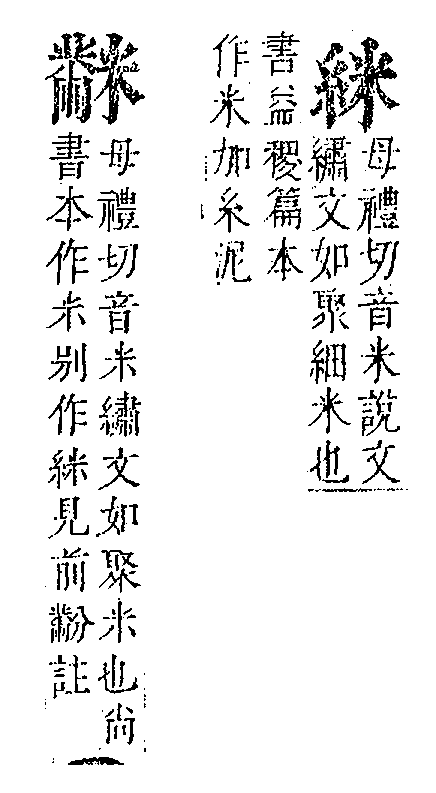 䋛母禮切音米說文
繡文如聚細米也
書益稷篇本
作米加糸泥
母禮切音米繡文如聚米也尚
書本作米別作䋛見前黺註